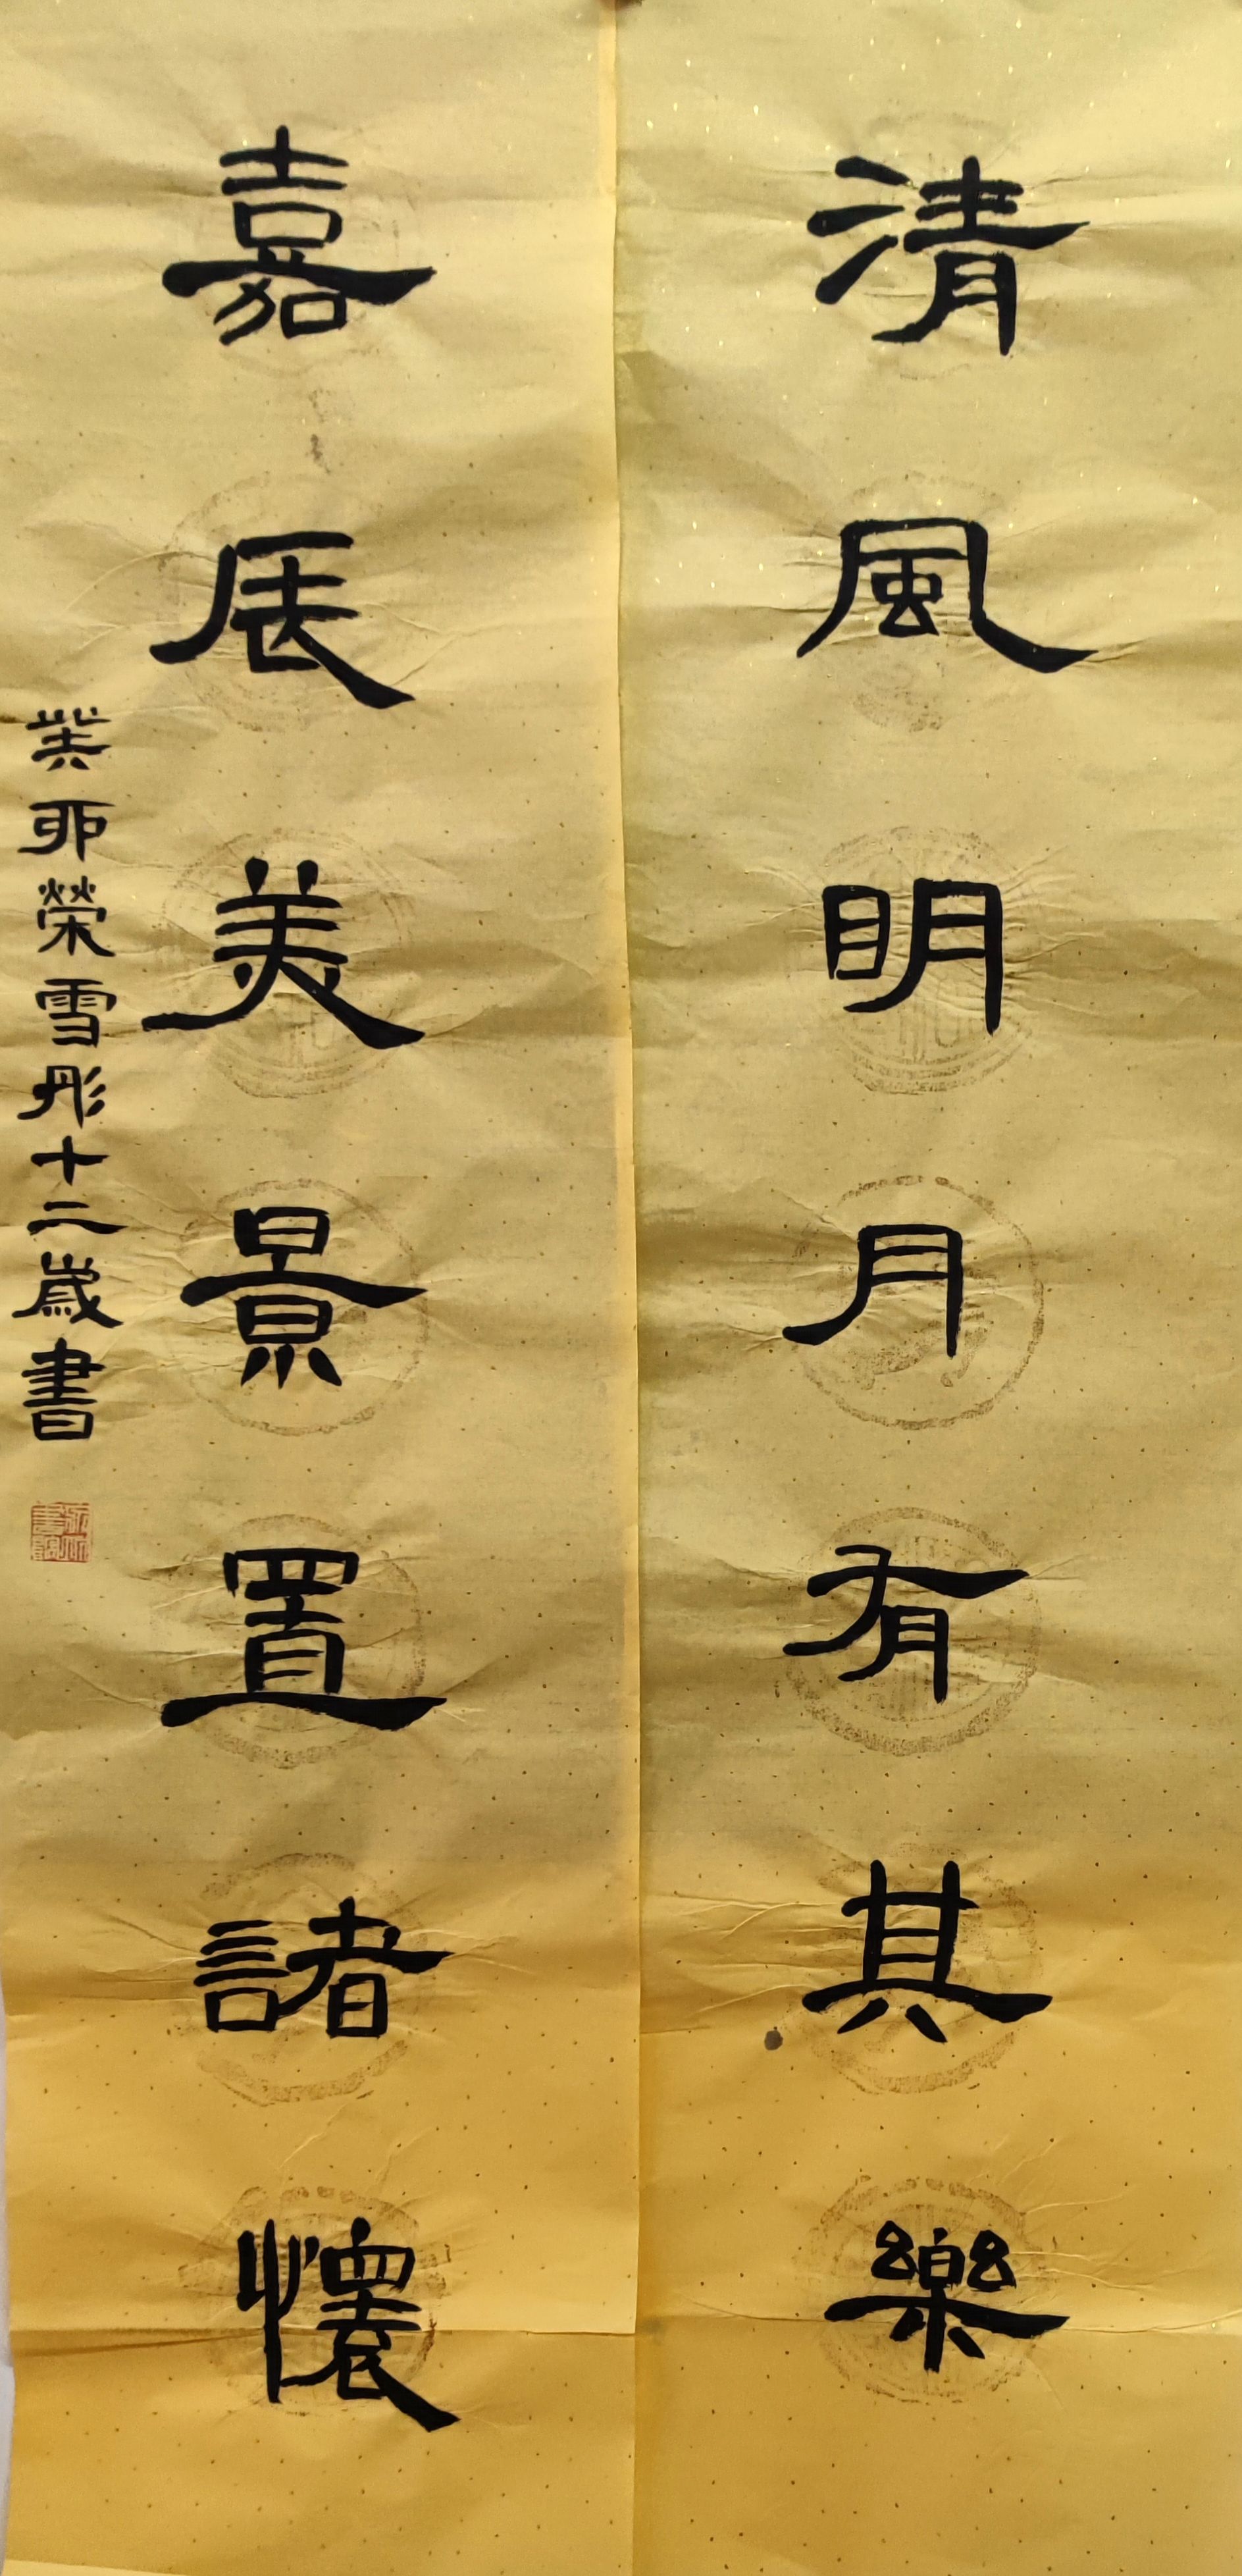 清風明月有其樂
嘉辰美景置諸懷
癸卯榮雪彤十二歲書